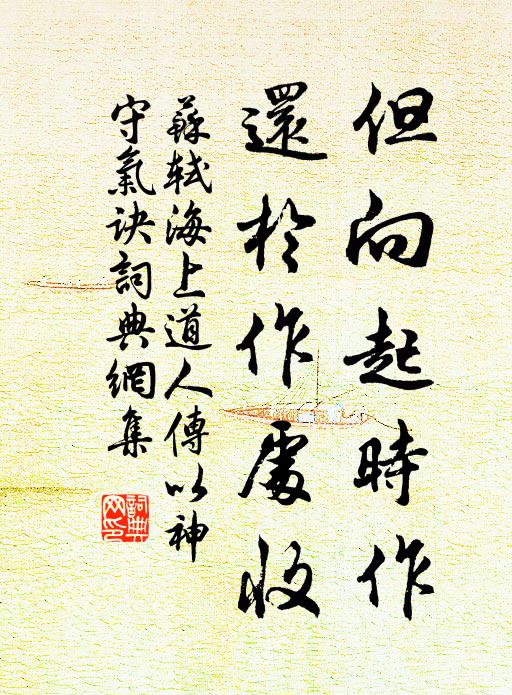 但向起時作
還於作處收
蘇軾海上道人傳以神
守氣訣詞典網集
詞典
网印